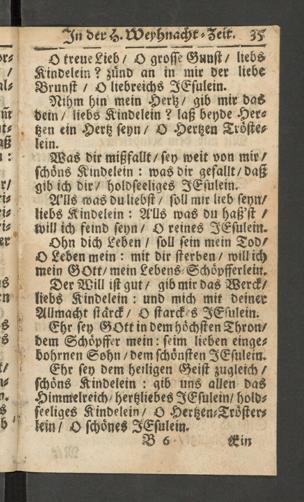 In der H. Weyhnacht-Zeit. 35
O treue Lieb / O grosse Gunst / liebs
Kindelein? zünd an in mir der liebe
Brunst / O liebreichs JEsulein.
Nihm hin mein Hertz / gib mir das
dein / liebs Kindelein? laß beyde Her-
tzen ein Hertz seyn / O Hertzen Tröste-
lein.
Was dir mißfallt / sey weit von mir /
schöns Kindelein: was dir gefallt / daß
gib ich dir / holdseeliges JEsulein.
Alls was du liebst / soll mir lieb seyn /
liebs Kindelein: Alls was du haß'st /
will ich feind seyn / O reines JEsulein.
Ohn dich Leben / soll sein mein Tod /
O Leben mein: mit dir sterben / will ich
mein GOtt / mein Lebens-Schöpfferlein.
Der Will ist gut / gib mir das Werck /
liebs Kindelein: und mich mit deiner
Allmacht stärck / O starckes JEsulein.
Ehr sey GOtt in dem höchsten Thron /
dem Schöpffer mein: seim lieben einge-
bohrnen Sohn / dem schönsten JEsulein.
Ehr sey dem heiligen Geist zugleich /
schöns Kindelein: gib uns allen das
Himmelreich / hertzliebes JEsulein / hold-
seeliges Kindelein / O Hertzen-Tröster-
lein / O schönes JEsulein.
B 6 Ein